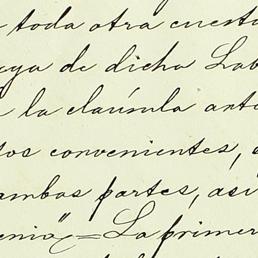 toda otra cuesta
ega de dicha Lab
la claúsula ante
tos convenientes,
ambas partes, así
enia"=La primer